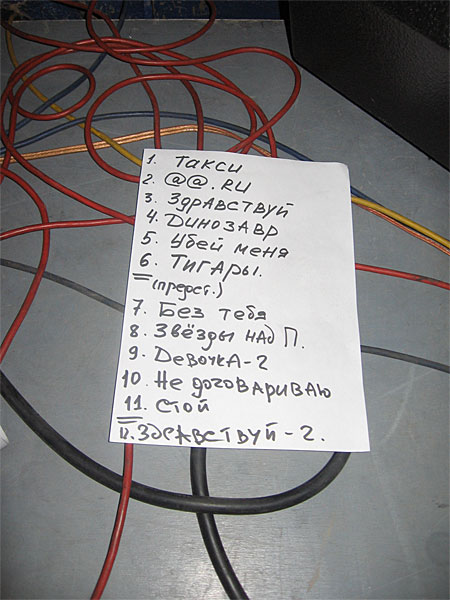 1. Такси
2. @@.RU
3. Здравствуй
4. Динозавр
5. Убей меня
6. Тигары.
(предст.)
7. Без тебя
8. Звёзды над П.
9. Девочка-2
10. Не договариваю
11. Стой
12. Здравствуй-2.